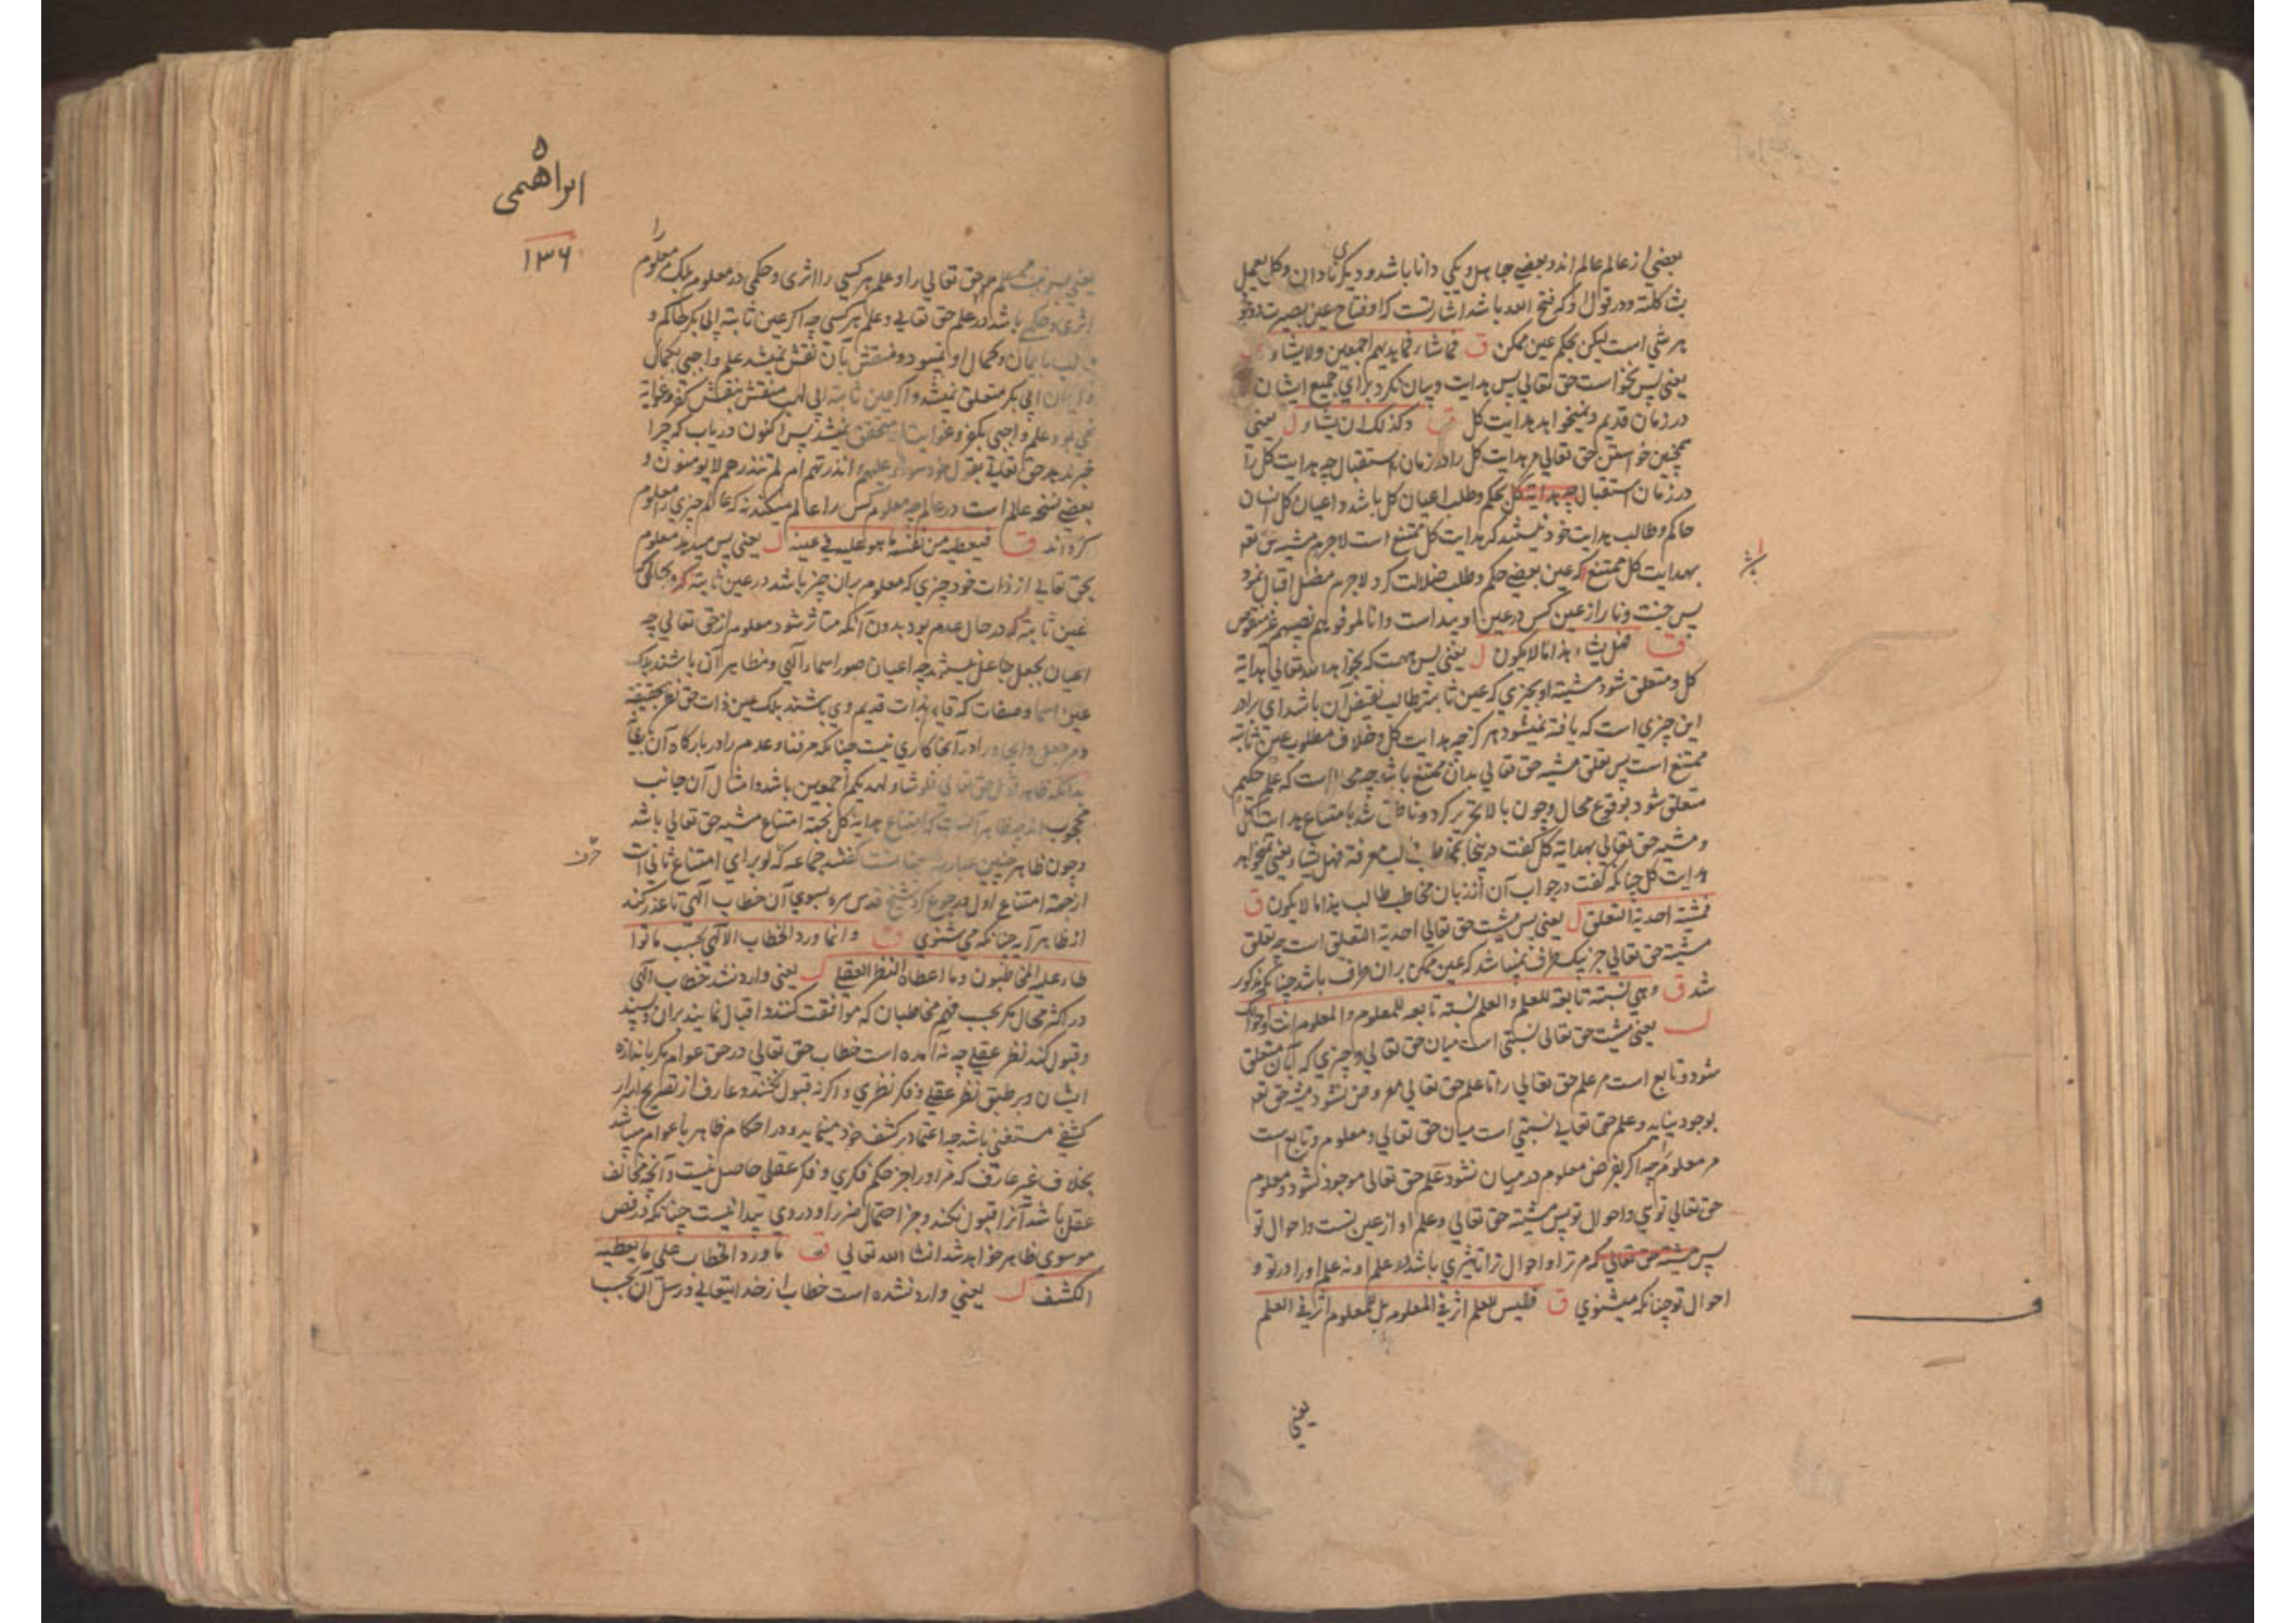 بعضی از عالم عالم اند و بعضی جاهل و یکی دانا باشد و دیگری نادان و کل یعمل
شاکلته و در قول او که فتح الله باشد اشارتست که او فتاح عین بصیرت
هر شی است لیکن بحکم عین ممکن ق فما شاء فما یدیهم اجمعین ولا یشاء
یعنی پس نخواست حق تعالی پس هدایت و بیان نکرد برای جمیع ایشان
در زمان قدیم و نمیخواهد هدایت کل ق وکذلک ان یشاء ل یعنی
همچنین خواستن حق تعالی مر هدایت کل را در زمان استقبال چه هدایت کل را
در زمان استقبال چه هدایت کل بحکم و طلب اعیان کل باشد و اعیان کل انسان
حاکم و طالب هدایت خود نیستند که هدایت کل ممتنع است لاجرم مشیه حق تعه
بهدایت کل ممتنع که عین بعضی حکم و طلب ضلالت کرد لاجرم مضل اقبال نمود
پس جنت و نار از عین کس در عین او پیداست وانا لموفوهم نصیبهم غیر منقوص
ق فهل یشاء هذا ما لا یکون ل یعنی پس هست که بخواهد الله تعالی هدایة
کل و متعلق شود مشیة او بچیزی که عین ثابته طالب نقیض آن باشد ای برادر
این چیزی است که یافته نمیشود هرگز چه هدایت کل و خلاف مطلوب عین ثابته
ممتنع است پس تعلق مشیه حق تعالی بدان ممتنع باشد چه محال است که علم حکیم
متعلق شود بوقوع محال و چون بالا تحریر کرد و ناطق شد بامتناع هدایت کل
و مشیه حق تعالی بهدایة کل گفت در ینجا معرفة فهل یشاء یعنی نمیخواهد
هدایت کل چنانکه گفت در جواب آن از زبان مخاطب طالب هذا ما لا یکون ق
فمشیته احدیة التعلق ل یعنی پس مشیت حق تعالی احدیة التعلق است چه تعلق
مشیة حق تعالی جز بیک طرف نمیباشد که عین ممکن بران طرف باشد چنانکه مذکور
شد ق وهی نسبة تابعة للعلم والعلم نسبة تابعة للمعلوم والمعلوم انت واحوالک
ل یعنی مشیت حق تعالی نسبتی است میان حق تعالی و چیزی که بآن متعلق
شود و تابع است مر علم حق تعالی را تا علم حق تعالی معروض نشود مشیه حق تعه
بوجود نیاید و علم حق تعالی نسبتی است میان حق تعالی و معلوم و تابع است
مر معلوم را چه اگر بفرض معلوم در میان نشود علم حق تعالی موجود نشود و معلوم
حق تعالی توی و احوال تو پس مشیته حق تعالی و علم او از عین تست و احوال تو
پس مشیته حق تعالی که مر ترا و احوال ترا تاثیری باشد در علم او نه علم او را در تو و
احوال تو چنانکه میشنوی ق فلیس للعلم اثر فی المعلوم بل للمعلوم اثر فی العلم
یعنی
ابراهیمی
۱۳۶
یعنی پس نیست علم مر حق تعالی را و علم هر کسی را اثری و حکمی در معلوم بلک معلوم را
اثری و حکمی باشد در علم حق تعالی و علم هر کسی چه اگر عین ثابته ابی بکر حاکم و
طالب بایمان و کمال او نمیبود و منقش بآن نقش نمیشد علم واجبی بکمال
و ایمان ابی بکر متعلق نمیشد و اگر عین ثابته ابی لهب منقش بنقش کفر و غوایة
نمی بود علم واجبی بکفر و غوایت او متحقق نمیشد پس اکنون دریاب که چرا
خبر بدهد حق تعالی بقول خود سواء علیهم ءانذرتهم ام لم تنذرهم لا یومنون و
بعضی نسخه عالم است در عالم چه معلوم کس را عالم میکند نه که عالم چیزی را معلوم
گرداند ق فیعطیه من نفسه ما هو علیه فی عینه ل یعنی پس میدهد معلوم
بحق تعالی از ذات خود چیزی که معلوم بران چیز باشد در عین ثابته
عین ثابته که در حال عدم بود بدون آنکه متاثر شود معلوم از حق تعالی چه
اعیان بجعل جاعل نیستند چه اعیان صور اسماء الهی و مظاهر آن باشند بلک
عین اسما و صفات که قایم بذات قدیم وی باشند بلک عین ذات حق
در آنجا کاری نیست چنانکه مر فنا و عدم را در بارگاه آن
بدانکه ظاهر قول حق تعالی فلو شاء لهدیکم اجمعین باشد و امثال آن جانب
محجوب اند چه ظاهر آنست که امتناع هدایة کل بجهة امتناع مشیه حق تعالی باشد
و چون ظاهر چنین عبارت گفتند جماعه که لو برای امتناع ثانی است
از جهة امتناع اول رجوع کرد شیخ قدس سره بسوی آن خطاب الهی تا عذر کند
از ظاهر آیه چنانکه می شنوی ق وانما ورد الخطاب الالهی بحسب ما تواطا
علیه المخاطبون وما اعطاه النظر العقلی ل یعنی وارد نشد خطاب الهی
در اکثر محال مگر بحسب فهم مخاطبان که موافقت کنند و اقبال نمایند بران
و قبول کند نظر عقلی چه نه آمده است خطاب حق تعالی در حق عوام مگر باندازه
ایشان و بر طبق نظر عقلی و فکر نظری و اگر نه قبول نکنند و عارف از تصریح اسرار
کشفی مستغنی باشد چه اعتماد بر کشف خود مینماید و در احکام ظاهر با عوام میباشد
بخلاف غیر عارف که مر او را جز حکم فکری و فکر عقلی حاصل نیست و آنچه مخالف
عقل باشد آنرا قبول نکند و جز احتمال ضرر او در وی پیدا نیست چنانکه در فص
موسوی ظاهر خواهد شد انشا الله تعالی ق ما ورد الخطاب علی ما یعطیه
الکشف ل یعنی وارد نشده است خطاب از خدایتعالی در رسل آن بحسب